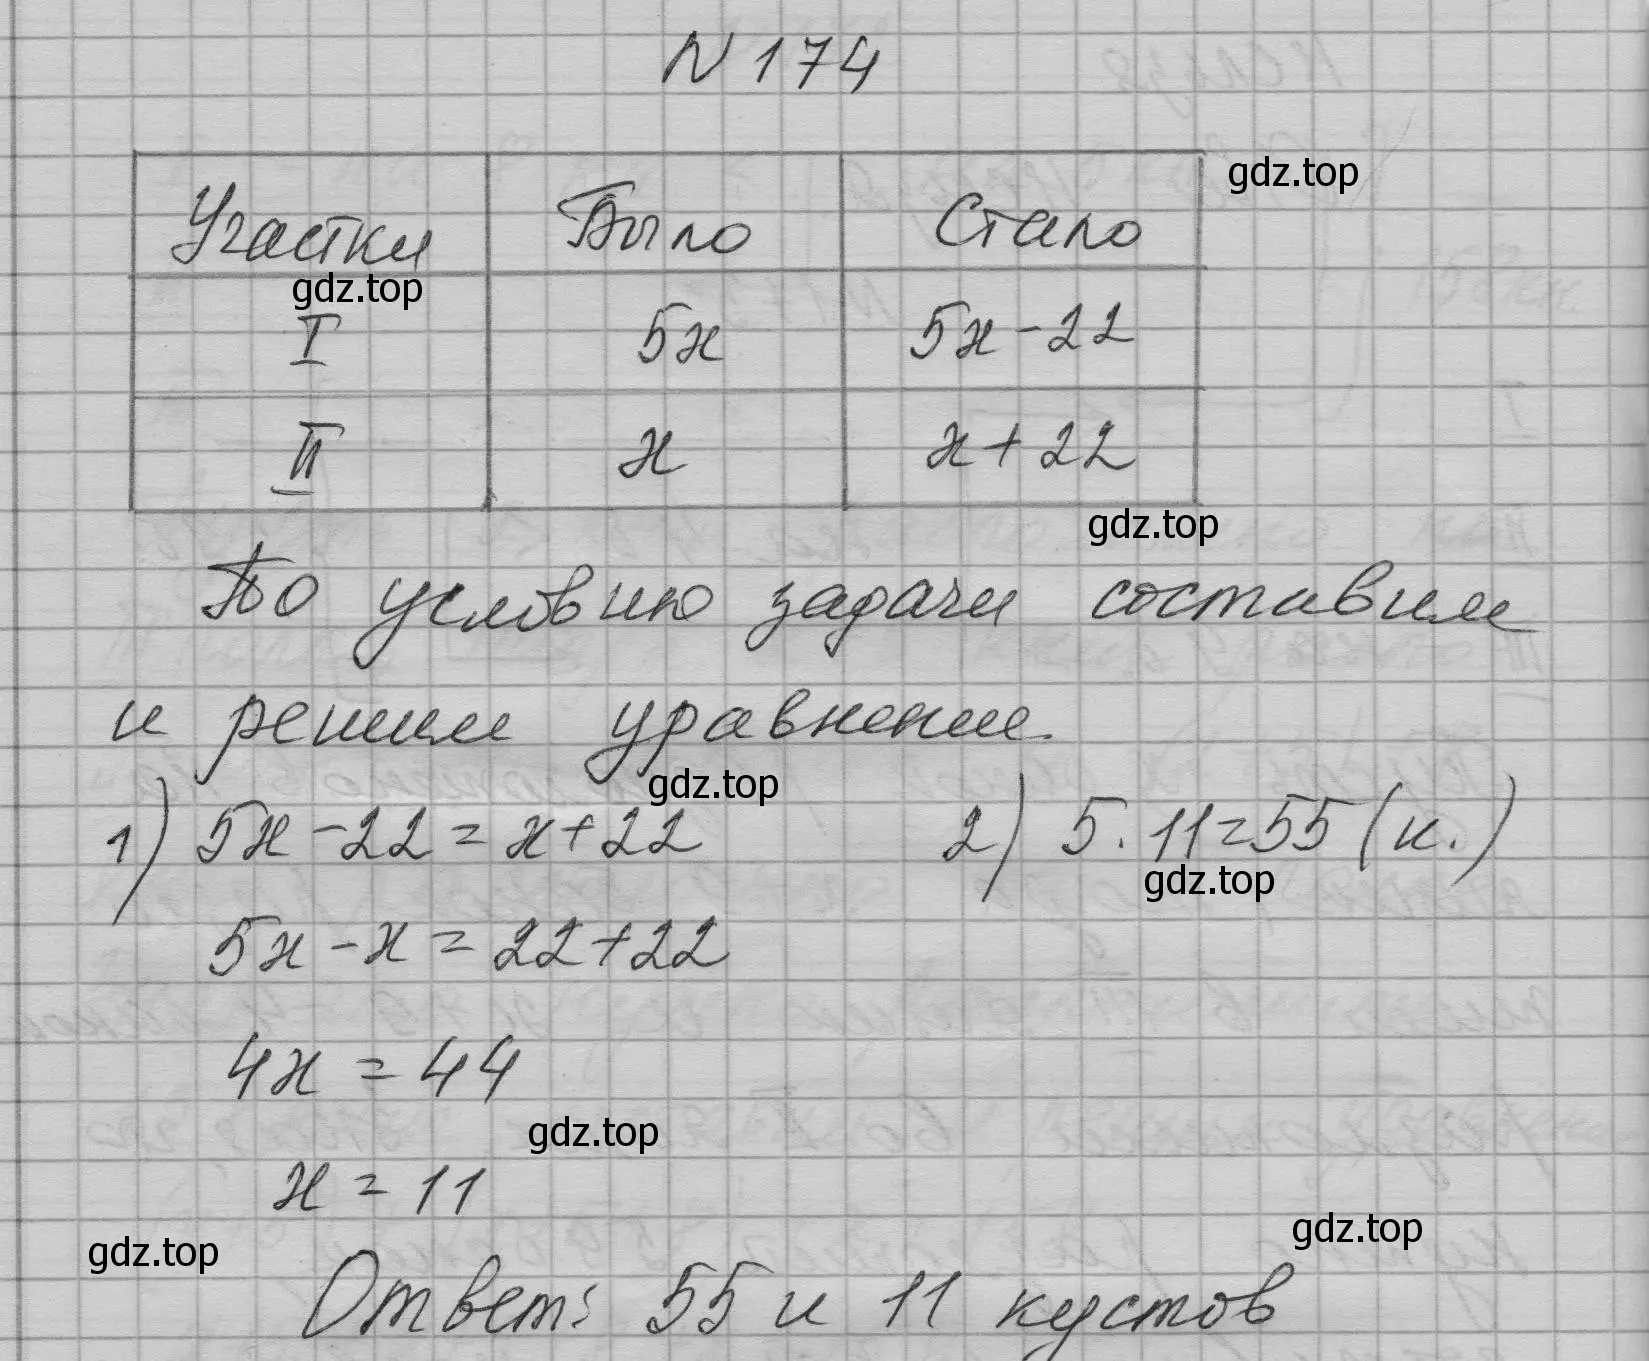 N 174
gdz.top
Участки Было Стало
gdz.top
I 5x 5x - 22
II x x + 22
gdz.top
По условию задачи составим
и решим уравнение.
gdz.top
1) 5x - 22 = x + 22 2) 5 · 11 = 55 (к.)
gdz.top
5x - x = 22 + 22
4x = 44
gdz.top
x = 11
gdz.top
gdz.top
Ответ: 55 и 11 кустов